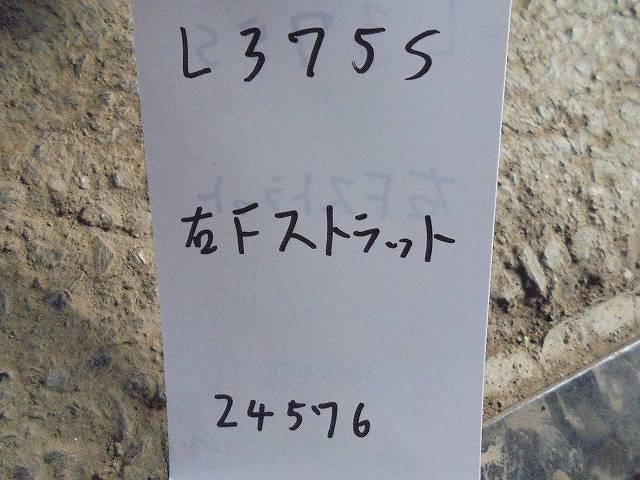 L375S
右Fストラット
24576